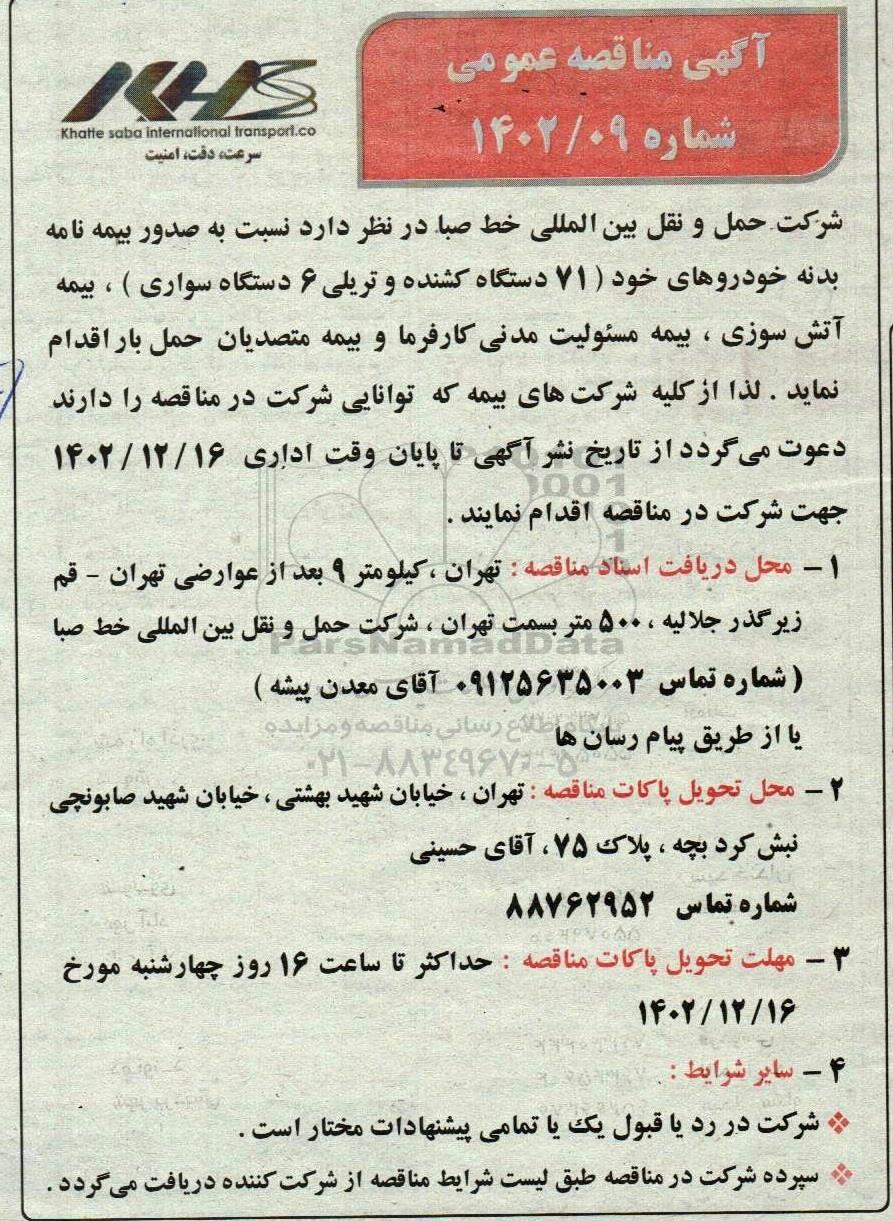 آگهی مناقصه عمومی
شماره ۱۴۰۲/۰۹
KHS
Khatte saba international transport.co
سرعت، دقت، امنیت
شرکت حمل و نقل بین المللی خط صبا در نظر دارد نسبت به صدور بیمه نامه
بدنه خودروهای خود ( ۷۱ دستگاه کشنده و تریلی ۶ دستگاه سواری ) ، بیمه
آتش سوزی ، بیمه مسئولیت مدنی کارفرما و بیمه متصدیان حمل بار اقدام
نماید . لذا از کلیه شرکت های بیمه که توانایی شرکت در مناقصه را دارند
دعوت می گردد از تاریخ نشر آگهی تا پایان وقت اداری ۱۴۰۲/۱۲/۱۶
جهت شرکت در مناقصه اقدام نمایند .
۱ – محل دریافت اسناد مناقصه : تهران ، کیلومتر ۹ بعد از عوارضی تهران - قم
زیرگذر جلالیه ، ۵۰۰ متر بسمت تهران ، شرکت حمل و نقل بین المللی خط صبا
( شماره تماس ۰۹۱۲۵۶۳۵۰۰۳ آقای معدن پیشه )
یا از طریق پیام رسان ها
۲ – محل تحویل پاکات مناقصه : تهران ، خیابان شهید بهشتی ، خیابان شهید صابونچی
نبش کرد بچه ، پلاک ۷۵ ، آقای حسینی
شماره تماس ۸۸۷۶۲۹۵۲
۳ – مهلت تحویل پاکات مناقصه : حداکثر تا ساعت ۱۶ روز چهارشنبه مورخ
۱۴۰۲/۱۲/۱۶
۴ – سایر شرایط :
❖ شرکت در رد یا قبول یک یا تمامی پیشنهادات مختار است .
❖ سپرده شرکت در مناقصه طبق لیست شرایط مناقصه از شرکت کننده دریافت می گردد .
ParsNamadData
پایگاه اطلاع رسانی مناقصه و مزایده
۰۲۱-۸۸۳۴۹۶۷۰-۵